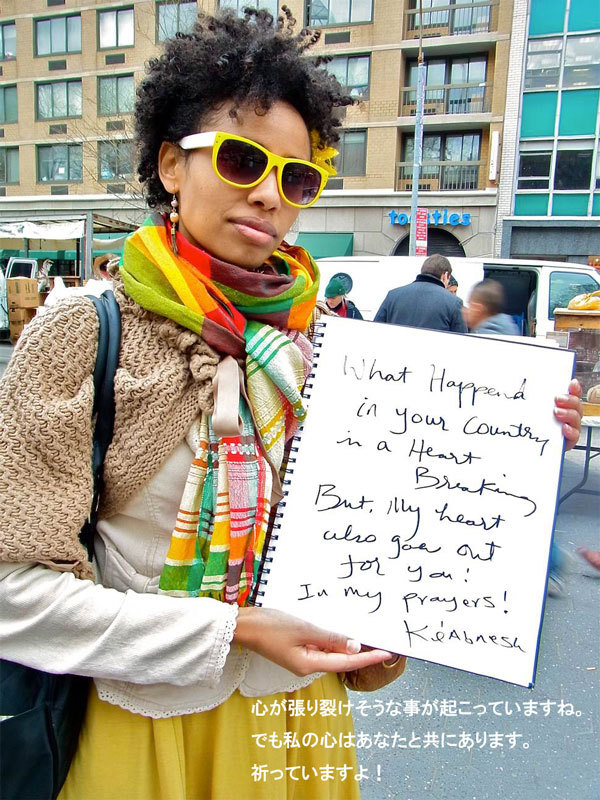 What Happend
in your country
in a Heart
Breaking
But, My heart
also goes out
for you!
In my prayers!
KiAbnesh
心が張り裂けそうな事が起こっていますね。
でも私の心はあなたと共にあります。
祈っていますよ！